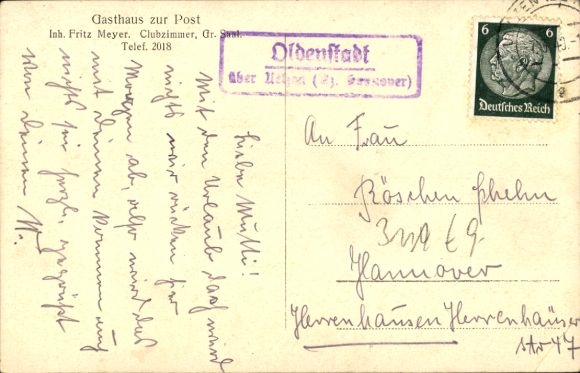 Gasthaus zur Post
Inh. Fritz Meyer. Clubzimmer, Gr. Saal.
Telef. 2018
Oldenstadt
über Uelzen (Hannover)
UELZEN
6 6
Deutsches Reich
Liebe Mutti!
Mit dem Urlaub das wird
nichts wir rücken hier
Morgen ab, also wird das
mit Deinem Kommen auch
nichts sei herzl. gegrüßt
von Deinem
An Frau
Röschen
Hannover
Herrenhausen Herrenhäuser
str 47